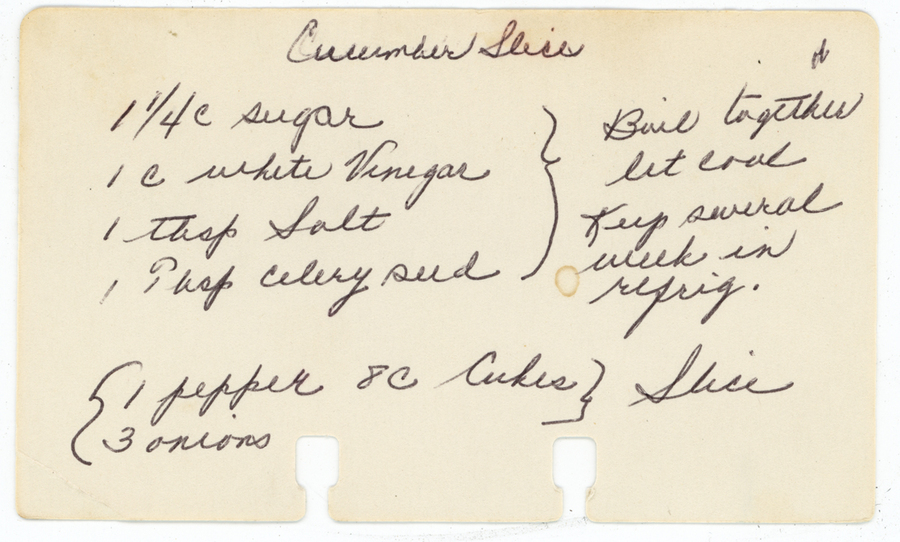 Cucumber Slice
1 1/4 c sugar
1 c white Vinegar
1 tbsp Salt
1 Tbsp celery seed
Boil together
let cool
Keep several
week in
refrig.
1 pepper 8c Cukes
3 onions
Slice